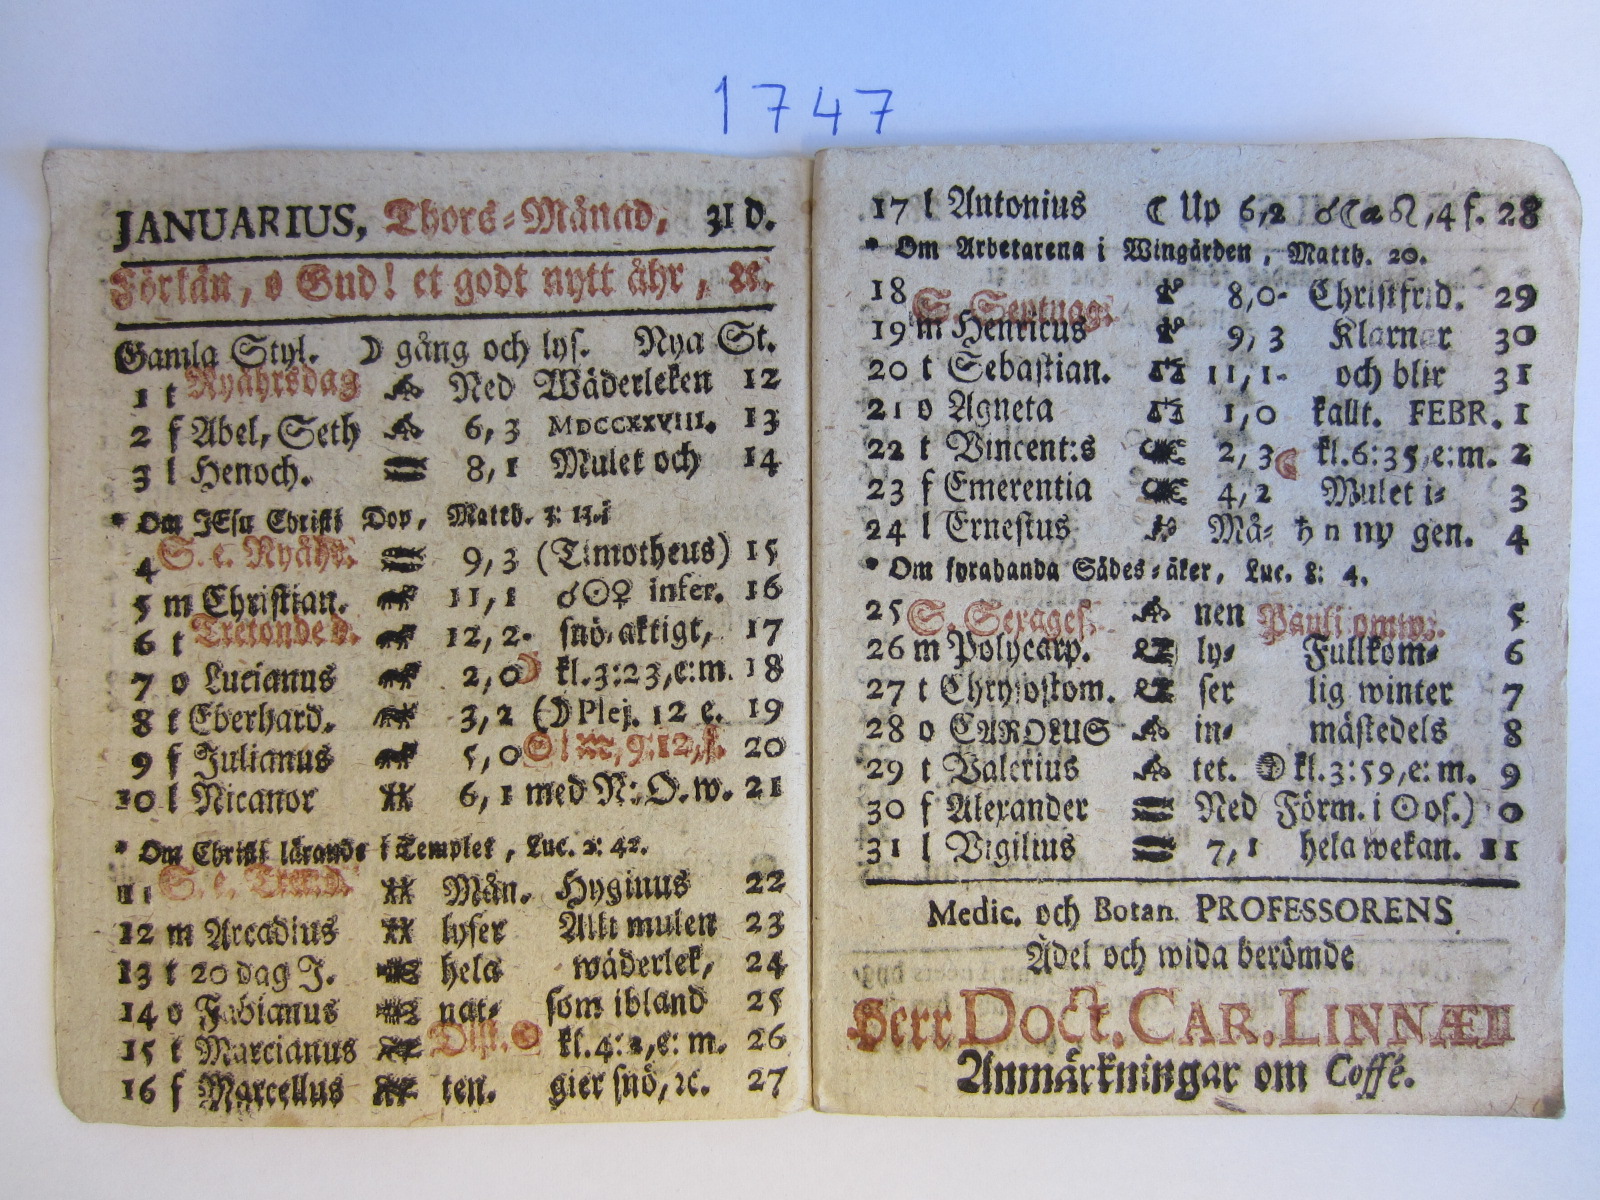 1747
JANUARIUS, Thors-Månad, 31 D.
Förlän, o Gud! et godt nytt åhr, &c.
Gamla Styl. ☽ gång och lys. Nya St.
1 t Nyåhrsdag Ned Wäderleken 12
2 f Abel, Seth 6,3 MDCCXXVIII. 13
3 l Henoch. 8,1 Mulet och 14
* Om JEsu Christi Dop, Matth. 3: 13.
4 S. e. Nyåhr. 9,3 (Timotheus) 15
5 m Christian. 11,1 ☌☉♀ infer. 16
6 t Tretonde d. 12,2. snö-aktigt, 17
7 o Lucianus 2,0 ☽ kl.3:23,e:m. 18
8 t Eberhard. 3,2 (☽ Plej. 12 e. 19
9 f Julianus 5,0 ☉ i ♒, 9:12,f. 20
10 l Nicanor 6,1 med N: O. w. 21
* Om Christi lärande i Templet, Luc. 2: 42.
11 S. e. Trett.d. Mån. Hyginus 22
12 m Arcadius lyser Allt mulen 23
13 t 20 dag J. hela wäderlek, 24
14 o Fabianus nat- som ibland 25
15 t Marcianus Dist. kl.4:2,e: m. 26
16 f Marcellus ten. gier snö, &c. 27
17 l Antonius ☾ Up 6,2 ☌☾ a ♌, 4 f. 28
* Om Arbetarena i Wingården, Matth. 20.
18 S. Septuag: 8,0- Christfrid. 29
19 m Henricus 9,3 Klarnar 30
20 t Sebastian. 11,1- och blir 31
21 o Agneta 1,0 kallt. FEBR. 1
22 t Vincent:s 2,3 ☾ kl.6:35,e:m. 2
23 f Emerentia 4,2 Mulet i- 3
24 l Ernestus Må- ♄ n ny gen. 4
* Om fyrahanda Sädes-åker, Luc. 8: 4.
25 S. Sexages. nen Pauli omw. 5
26 m Polycarp. ly- Fullkom- 6
27 t Chrysostom. ser lig winter 7
28 o CAROLUS in- mästedels 8
29 t Valerius tet. kl.3:59,e: m. 9
30 f Alexander Ned Förm. i ☉ os.) 0
31 l Vigilius 7,1 hela wekan. 11
Medic. och Botan. PROFESSORENS
Ädel och wida berömde
Herr DOCT. CAR. LINNÆI
Anmärkningar om Coffé.